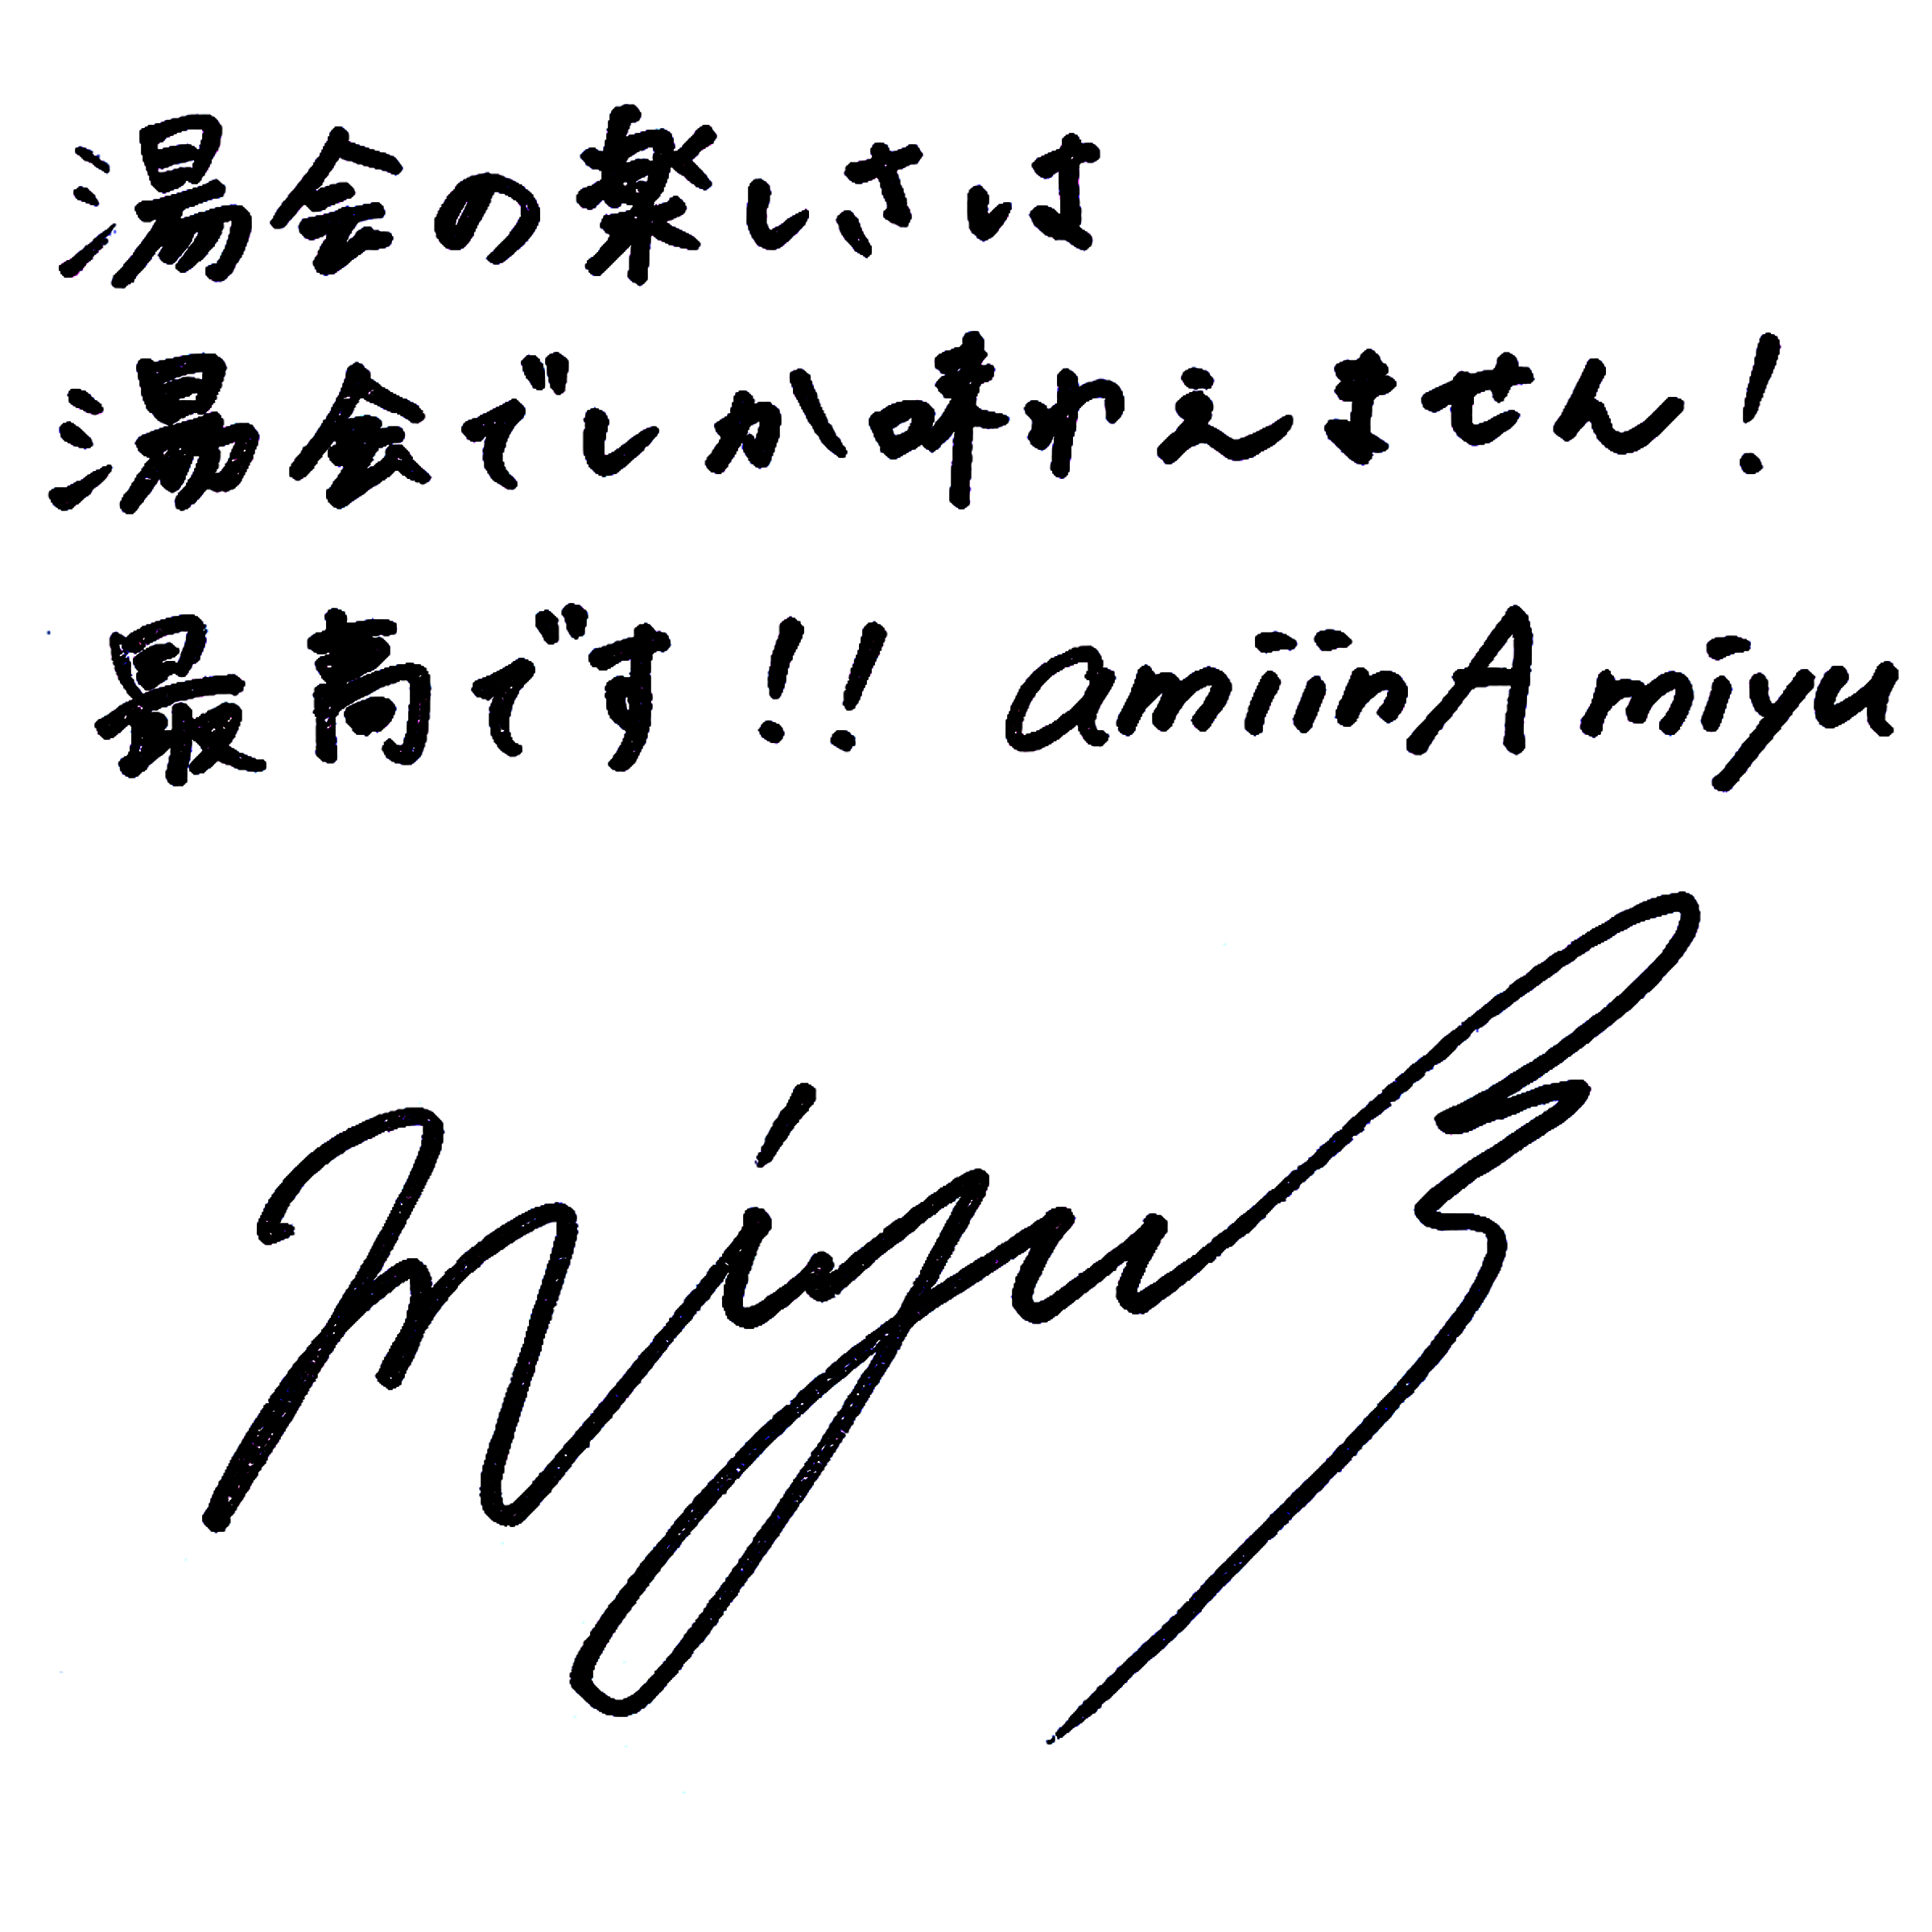 湯会の楽しさは
湯会でしか味わえません！
最高です！！ amiinAmiyu
miyu